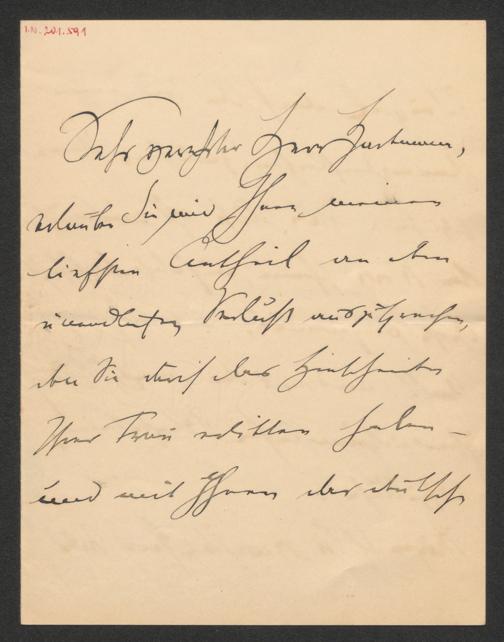 I.N. 201.591
Sehr verehrter Herr Hartmann,
erlauben Sie mir Ihnen meinen
tiefsten Antheil an dem
unendlichen Verlust auszusprechen,
den Sie durch das Hinscheiden
Ihrer Frau erlitten haben –
und mit Ihnen der deutsche